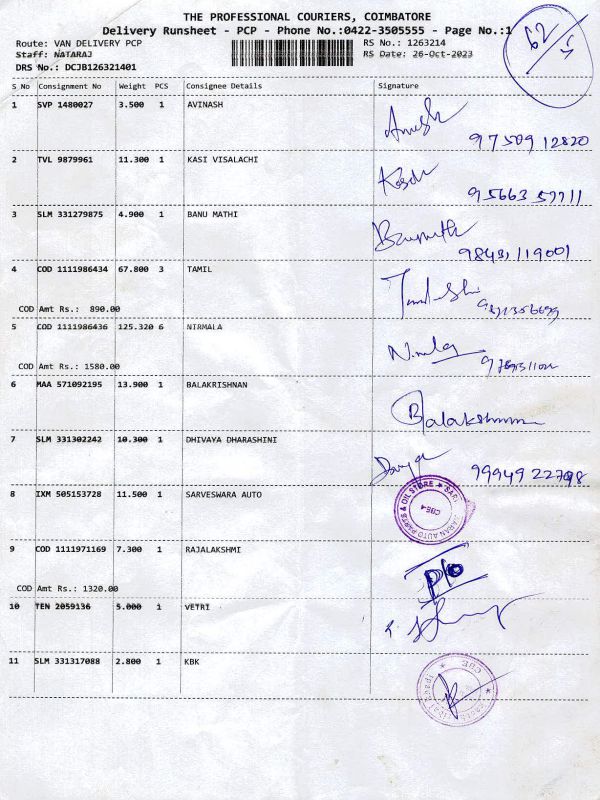 THE PROFESSIONAL COURIERS, COIMBATORE
Delivery Runsheet - PCP - Phone No.:0422-3505555 - Page No.:1
Route: VAN DELIVERY PCP RS No.: 1263214
Staff: NATARAJ RS Date: 26-Oct-2023
DRS No.: DCJB126321401
62
S No Consignment No Weight PCS Consignee Details Signature
1 SVP 1480027 3.500 1 AVINASH
97509 12820
2 TVL 9879961 11.300 1 KASI VISALACHI
95663 57711
3 SLM 331279875 4.900 1 BANU MATHI
98431 119001
4 COD 1111986434 67.800 3 TAMIL
COD Amt Rs.: 890.00
5 COD 1111986436 125.320 6 NIRMALA
COD Amt Rs.: 1580.00
6 MAA 571092195 13.900 1 BALAKRISHNAN
7 SLM 331302242 10.300 1 DHIVAYA DHARASHINI
99949 22798
8 IXM 505153728 11.500 1 SARVESWARA AUTO
AUTO PARTS & OIL STORE
CBE-4
9 COD 1111971169 7.300 1 RAJALAKSHMI
COD Amt Rs.: 1320.00
10 TEN 2059136 5.000 1 VETRI
11 SLM 331317088 2.800 1 KBK